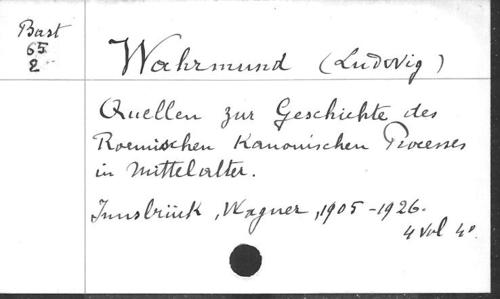 Bast
65
2
Wahrmund (Ludovig)
Quellen zur Geschichte des
Roemischen Kanonischen Processes
in Mittelalter.
Innsbrück, Wagner, 1905-1926.
4 vol 4º